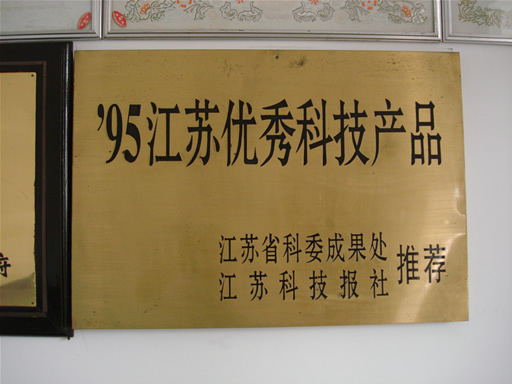 '95江苏优秀科技产品
江苏省科委成果处
江苏科技报社
推荐